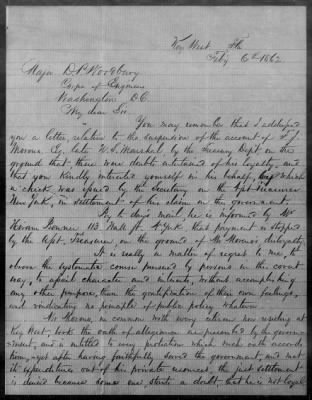 Key West Fla
Feby 6th 1862
Major D. P. Woodbury
Corps of Engineers
Washington D.C.
My dear Sir,
You may remember that I addressed
you a letter, relative to the suspension of the account of F. J.
Moreno, Esq. late U.S. Marshal, by the Treasury Dept on the
ground that there were doubts entertained of his loyalty, and
that you kindly interested yourself in his behalf, upon which
a check was issued by the Secretary on the Asst Treasurer
New York, in settlement of his claim on the government.
By to day's mail, he is informed by Mr
Hiram Benner 113 Wall St. N. York that payment is stopped
by the Asst. Treasurer, on the ground of Mr Moreno's disloyalty.
It is really a matter of regret to me, to
observe the systematic course pursued by persons in the covert
way, to assail character and interests, without accomplishing
any other purpose, than the gratification of their own feelings,
and vindicating no principle of public policy whatever.
Mr Moreno, in common with every citizen now residing at
Key West, took the oath of allegiance as presented by the govern-
ment, and is entitled to every protection which such oath accords
him, yet after having faithfully served the government, and met
its expenditures out of his private resources, the just settlement
is denied because some one, starts a doubt, that he is not loyal